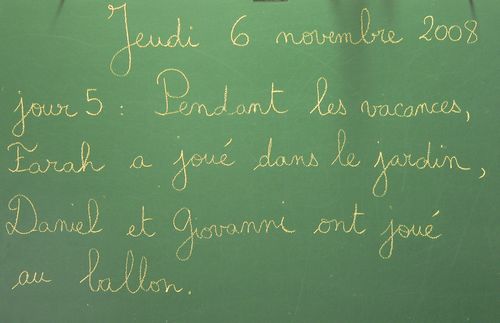 Jeudi 6 novembre 2008
jour 5 : Pendant les vacances,
Farah a joué dans le jardin,
Daniel et Giovanni ont joué
au ballon.